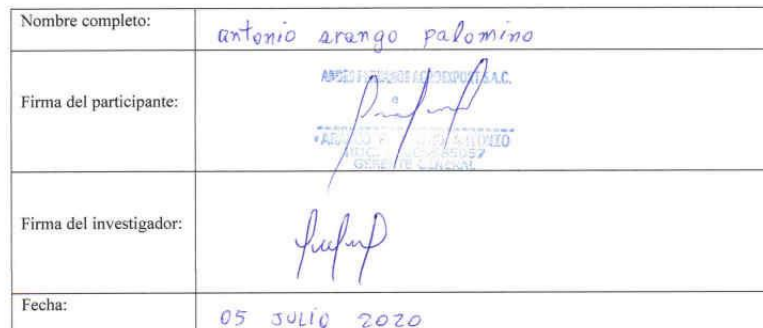 Nombre completo: antonio arango palomino
Firma del participante:
S.A.C.
ANTONIO
GERENTE GENERAL
Firma del investigador:
Fecha: 05 JULIO 2020